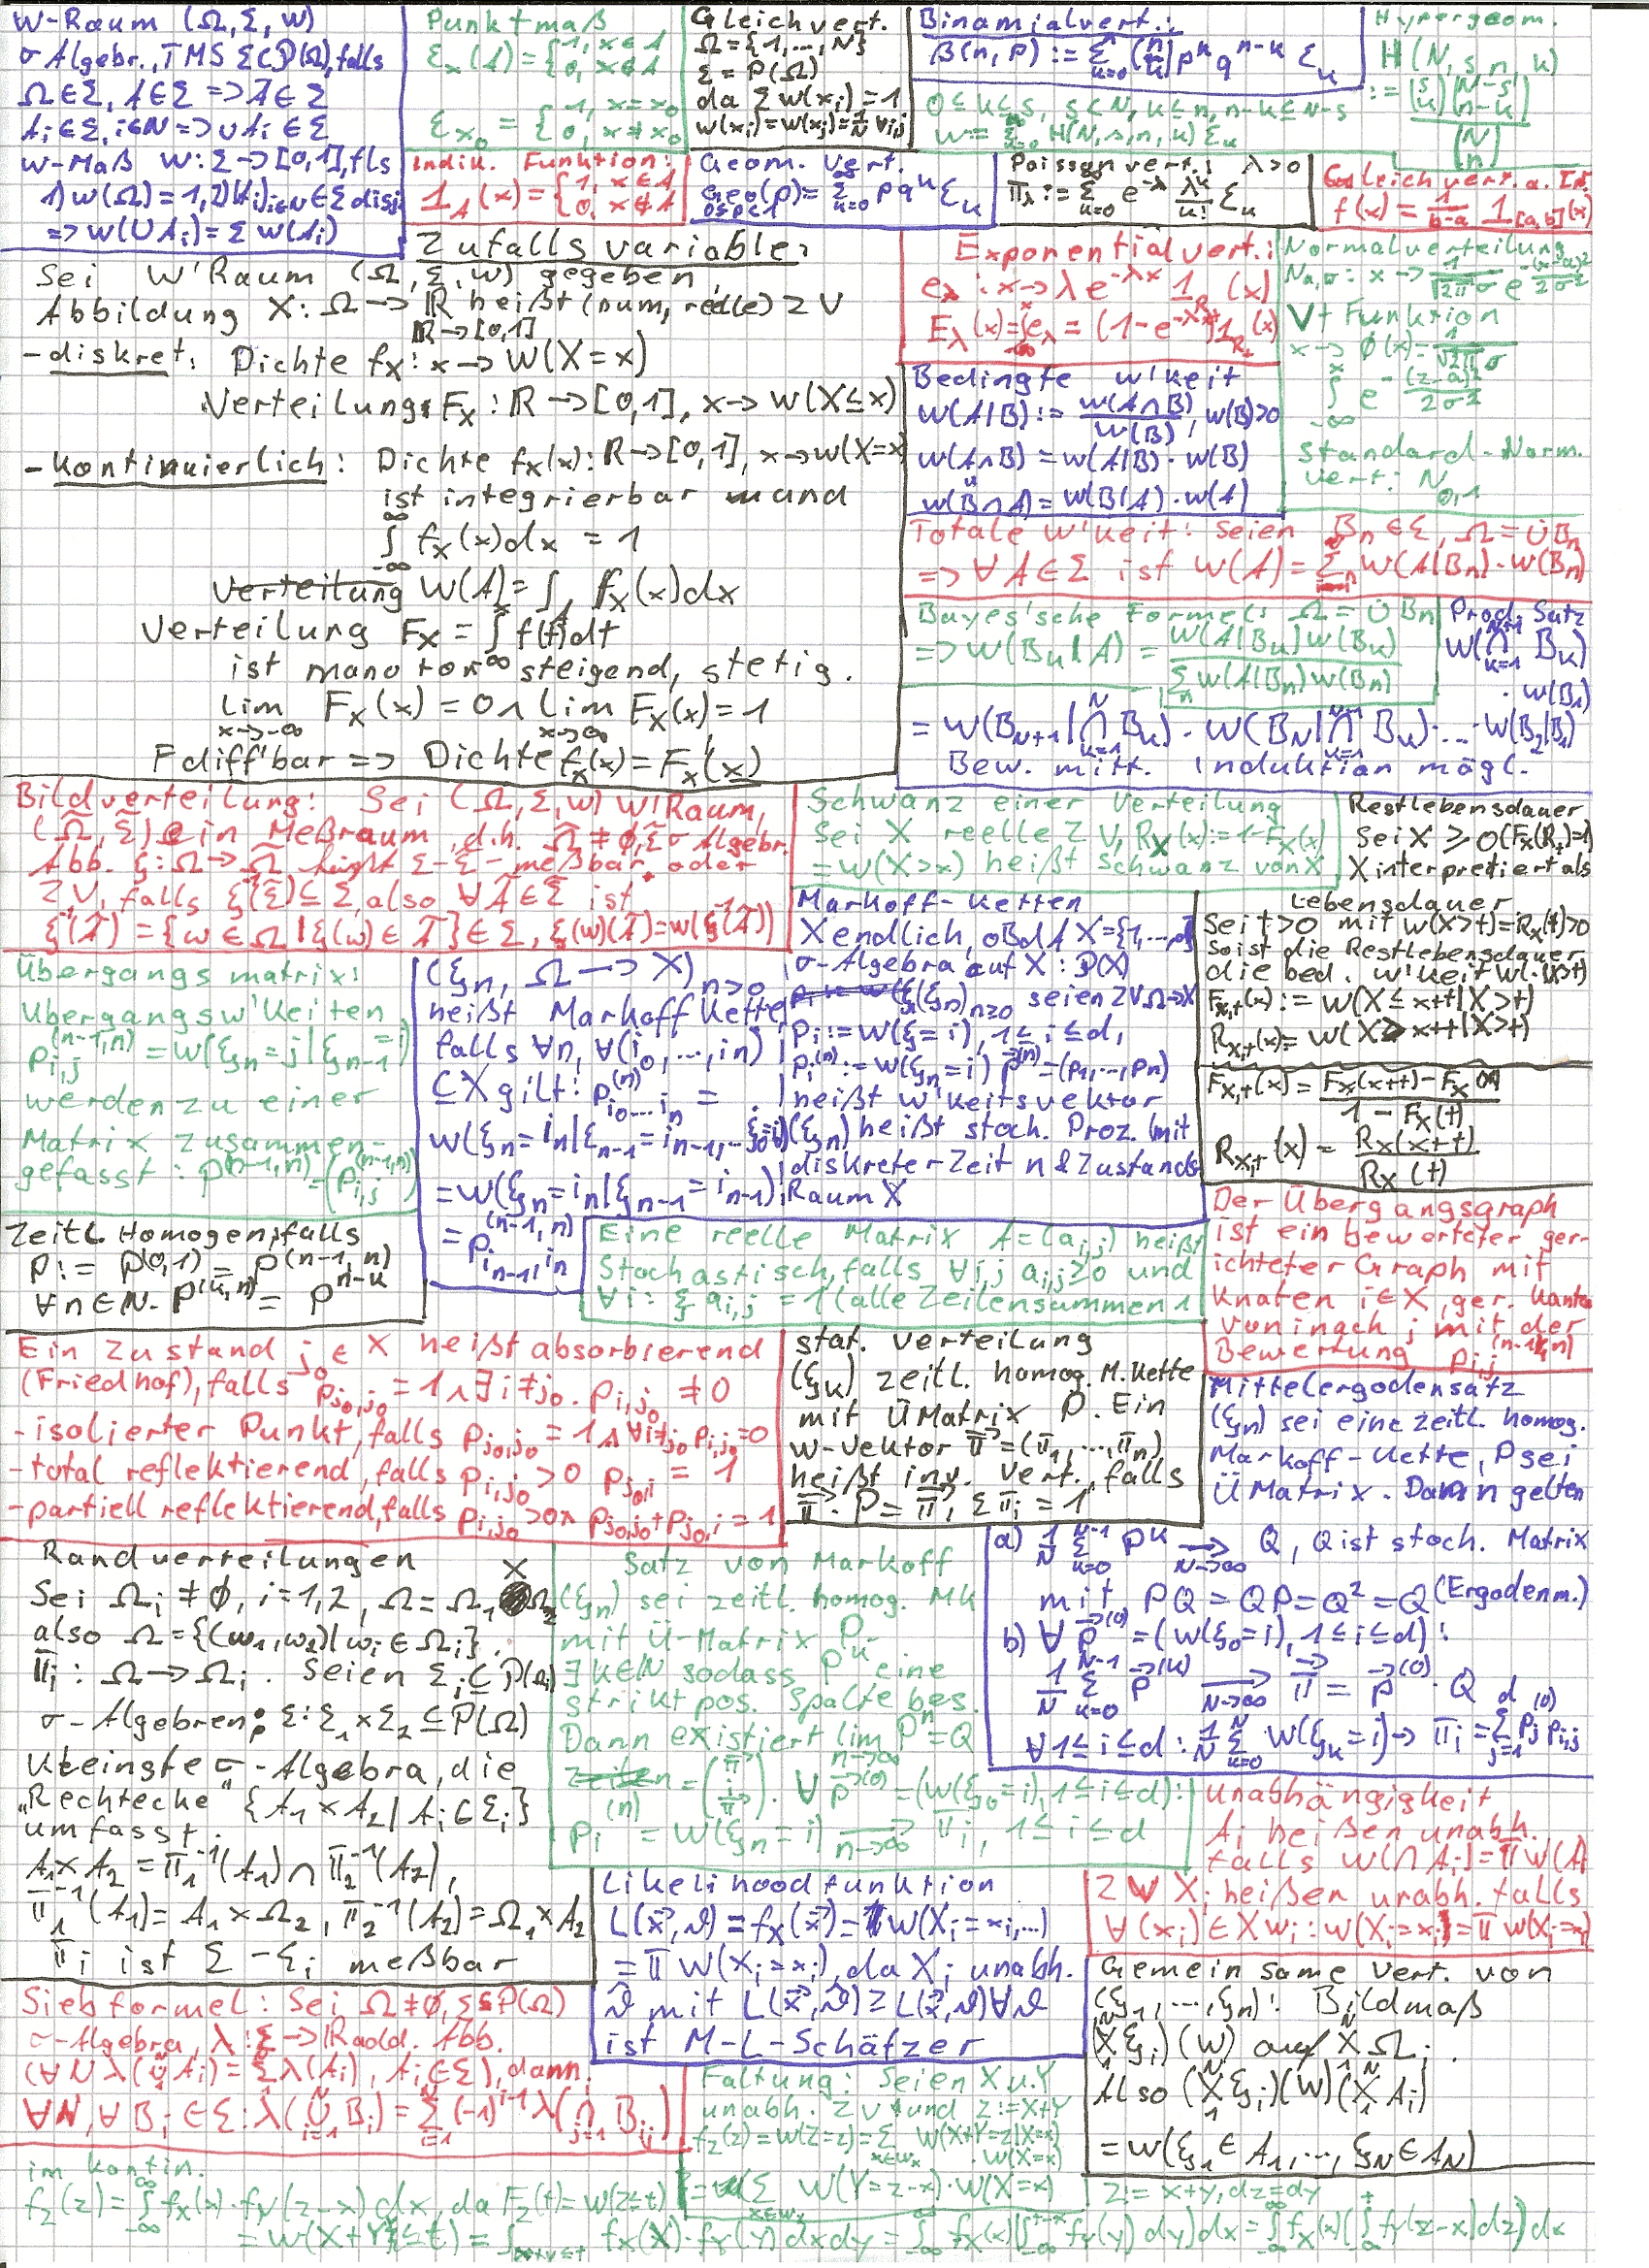 W-Raum (Ω, Σ, w)
σ Algebr., TMS Σ⊂P(Ω), falls
Ω∈Σ, A∈Σ => Ā∈Σ
Ai∈Σ, i∈N => ∪Ai ∈Σ
W-Maß W: Σ→[0,1], fls
1) w(Ω)=1, 2) (Ai)i∈N ∈Σ disj.
=> w(∪Ai) = Σ w(Ai)
Punktmaß
εx(A) = {1, x∈A
0, x∉A
εx0 = {1, x=x0
0, x≠x0
Indik. Funktion:
1A(x) = {1, x∈A
0, x∉A
Gleichvert.
Ω={1,...,N}
Σ=P(Ω)
da Σw(xi)=1
w(xi)=w(xj)=1/N ∀i,j
Binamialvert.:
B(n,p) := Σ k=0 n (n k) p^k q^n-k εk
Hypergeom.
H(N,s,n,k)
:= (s k)(N-s n-k) / (N n)
0≤k≤s, s≤N, k≤n, n-k≤N-s
W := Σ k=0 H(N,s,n,k) εk
Geom. Vert.
Geo(p) = Σ k=0 ∞ p q^k εk
0≤p≤1
Poissonvert.: λ>0
πλ := Σ k=0 ∞ e^-λ λ^k/k! εk
Gleichvert. a. Int.
f(x) = 1/b-a 1[a,b](x)
Zufallsvariable:
Sei W'Raum (Ω, Σ, w) gegeben,
Abbildung X: Ω→ℝ heißt (num, reelle) ZV
ℝ→[0,1]
-diskret: Dichte fX: x→W(X=x)
Verteilung: FX: ℝ→[0,1], x→W(X≤x)
-kontinuierlich: Dichte fX(x): ℝ→[0,1], x→w(X=x)
ist integrierbar und
∫ -∞ ∞ fX(x)dx = 1
Verteilung W(A) = ∫A fX(x)dx
Verteilung FX = ∫ -∞ x f(t)dt
ist monoton steigend, stetig.
lim x→-∞ FX(x) = 0 ∧ lim x→∞ FX(x) = 1
F diff'bar => Dichte fX(x) = FX'(x)
Exponentialvert.:
eλ: x→λe^-λx 1R+(x)
Eλ(x) = ∫ -∞ x eλ = (1-e^-λx) 1R+(x)
Normalverteilung
Na,σ: x→ 1/√2π σ e^-(x-a)²/2σ²
Vt Funktion
x→ ϕ(x) = 1/√2π σ
∫ -∞ x e^-(z-a)²/2σ²
Standard-Norm.
vert: N0,1
Bedingte W'keit
W(A|B) := w(A∩B)/w(B), w(B)>0
w(A∩B) = w(A|B)·w(B)
w(B∩A) = w(B|A)·w(A)
Totale W'keit: Seien Bn∈Σ, Ω=∪Bn
=> ∀A∈Σ ist W(A) = Σn W(A|Bn)·W(Bn)
Bayes'sche Formel: Ω=∪Bn
=> W(Bk|A) = W(A|Bk)w(Bk) / Σn w(A|Bn)w(Bn)
Prod. Satz
W(∩ k=1 N+1 Bk)
= W(BN+1|∩ k=1 N Bk)·W(BN|∩ k=1 N-1 Bk)·...·W(B2|B1)
·w(B1)
Bew. mitt. Induktion mögl.
Bildverteilung: Sei (Ω,Σ,w) W'Raum,
(Ω̃,Σ̃) ein Meßraum, d.h. Ω̃≠∅, Σ̃ σ Algebr.
Abb. ξ: Ω→Ω̃ heißt Σ-Σ̃-meßbar oder
ZV, falls ξ^-1(Σ̃)⊆Σ, also ∀Ã∈Σ̃ ist
ξ^-1(Ã) = {ω∈Ω|ξ(ω)∈Ã}∈Σ, ξ(w)(Ã)=w(ξ^-1(Ã))
Schwanz einer Verteilung
Sei X reelle ZV, RX(x):=1-FX(x)
=W(X>x) heißt Schwanz von X
Restlebensdauer
Sei X≥0 (FX(R+)=1)
X interpretiert als
Lebensdauer
Sei t>0 mit w(X>t)=RX(t)>0
so ist die Restlebensdauer
die bed. W'keit W(·|X>t)
FX,t(x) := W(X≤x+t|X>t)
RX,t(x) = W(X>x+t|X>t)
FX,t(x) = FX(x+t)-FX(t) / 1-FX(t)
RX,t(x) = RX(x+t) / RX(t)
Markoff-Ketten
X endlich, oBdA X={1,...,d}
σ-Algebra auf X: P(X)
(ξn)n≥0 seien ZV Ω→X
pi := W(ξ=i), 1≤i≤d,
pi^(n) := W(ξn=i) p^(n) = (p1,...,pn)
heißt W'keitsvektor
(ξn) heißt stoch. Proz. (mit
diskreter Zeit n & Zustands
Raum X
Übergangsmatrix:
Übergangsw'keiten
pi,j^(n-1,n) = w(ξn=j|ξn-1=i)
werden zu einer
Matrix zusammen-
gefasst: P^(n-1,n) = (pi,j^(n-1,n))
(ξn, Ω→X)n>0
heißt Markoff Kette
falls ∀n, ∀(i0,...,in)
⊆X gilt: p i0...in^(n) =
W(ξn=in|ξn-1=in-1,...ξ0=i0)
=W(ξn=in|ξn-1=in-1)
=p in-1,in^(n-1,n)
Zeitl. Homogen, falls
P := P^(0,1) = P^(n-1,n)
∀n∈N. P^(k,n) = P^n-k
Eine reelle Matrix A=(ai,j) heißt
Stochastisch, falls ∀i,j ai,j≥0 und
∀i: Σ ai,j = 1 (alle Zeilensummen 1
Der Übergangsgraph
ist ein bewerteter ger-
ichteter Graph mit
Knoten i∈X, ger. Kante
von i nach j mit der
Bewertung pi,j^(n-1,n)
Ein Zustand j0∈X heißt absorbierend
(Friedhof), falls pj0,j0 = 1 ∧ ∃i≠j0. pi,j0 ≠0
-isolierter Punkt, falls pj0,j0 = 1 ∧ ∀i≠j0 pi,j0=0
-total reflektierend, falls pi,j0 >0 pj0,i = 1
-partiell reflektierend, falls pi,j0>0 ∧ pj0,j0+pj0,i = 1
stat. Verteilung
(ξk) zeitl. homog. M.Kette
mit ÜMatrix P. Ein
w-vektor π=(π1,...,πn)
heißt inv. Vert. falls
π·P=π, Σπi = 1
Mittelergodensatz
(ξn) sei eine zeitl. homog.
Markoff-Kette, P sei
ÜMatrix. Dann gelten
a) 1/N Σ k=0 N-1 P^k →N→∞ Q, Q ist stoch. Matrix
mit PQ=QP=Q²=Q (Ergodenm.)
b) ∀ p^(0) = (w(ξ0=i), 1≤i≤d):
1/N Σ k=0 N-1 p^(k) →N→∞ π = p^(0)·Q
∀1≤i≤d: 1/N Σ k=0 N W(ξk=i) → πi = Σ j=1 d pj^(0) pi,j
Randverteilungen
Sei Ωi≠∅, i=1,2, Ω=Ω1×Ω2
also Ω={(w1,w2)|wi∈Ωi}.
πi: Ω→Ωi. Seien Σi⊆P(Ωi)
σ-Algebren; Σ: Σ1×Σ2⊆P(Ω)
kleinste σ-Algebra, die
"Rechtecke" {A1×A2|Ai∈Σi}
umfasst.
A1×A2 = π1^-1(A1)∩π2^-1(A2),
π1^-1(A1)=A1×Ω2, π2^-1(A2)=Ω1×A2
πi ist Σ-Σi meßbar
Satz von Markoff
(ξn) sei zeitl. homog. MK
mit Ü-Matrix P.
∃k∈N sodass P^k eine
strikt pos. Spalte bes.
Dann existiert lim n→∞ P^n=Q
= (π ⋮ π). ∀p^(0)=(W(ξ0=i), 1≤i≤d):
pi^(n) = W(ξn=i) →n→∞ πi, 1≤i≤d
Unabhängigkeit
Ai heißen unabh.
falls W(∩Ai)=πW(Ai
ZV Xi heißen unabh. falls
∀(xi)∈XWi: W(Xi=xi)=πW(Xi=x
Likelihoodfunktion
L(x,ϑ) = fX(x) = W(Xi=xi,...)
= πW(Xi=xi), da Xi unabh.
ϑ̂ mit L(x,ϑ̂)≥L(x,ϑ)∀ϑ
ist M-L-Schätzer
Gemeinsame Vert. von
(ξ1,...,ξn): Bildmaß
(X 1 N ξi)(W) auf X 1 N Ωi.
Also (X 1 N ξi)(W)(X 1 N Ai)
=W(ξ1∈A1,...,ξN∈AN)
Siebformel: Sei Ω≠∅, Σ⊆P(Ω)
σ-Algebra, λ: Σ→ℝ add. Abb.
(∀N λ(∪Ai)=Σλ(Ai), Ai∈Σ), dann
∀N, ∀Bi∈Σ: λ(∪ i=1 N Bi) = Σ i=1 N (-1)^i-1 λ(∩ j=1 i Bij)
Faltung: Seien X u. Y
unabh. ZV und Z:=X+Y
fZ(z)=W(Z=z)=Σ x∈Wx W(X+Y=z|X=x)
·W(X=x)
= Σ x∈Wx W(Y=z-x)·W(X=x)
im kontin.
fZ(z) = ∫ -∞ ∞ fX(x)·fY(z-x)dx, da FZ(t)=W(Z≤t)
Z:=x+y, dz=dy
=W(X+Y≤t) = ∫ x+y≤t fX(X)·fY(Y)dxdy = ∫ -∞ ∞ fX(x)(∫ -∞ t-x fY(y)dy)dx = ∫ -∞ ∞ fX(x)(∫ -∞ t fY(z-x)dz)dx